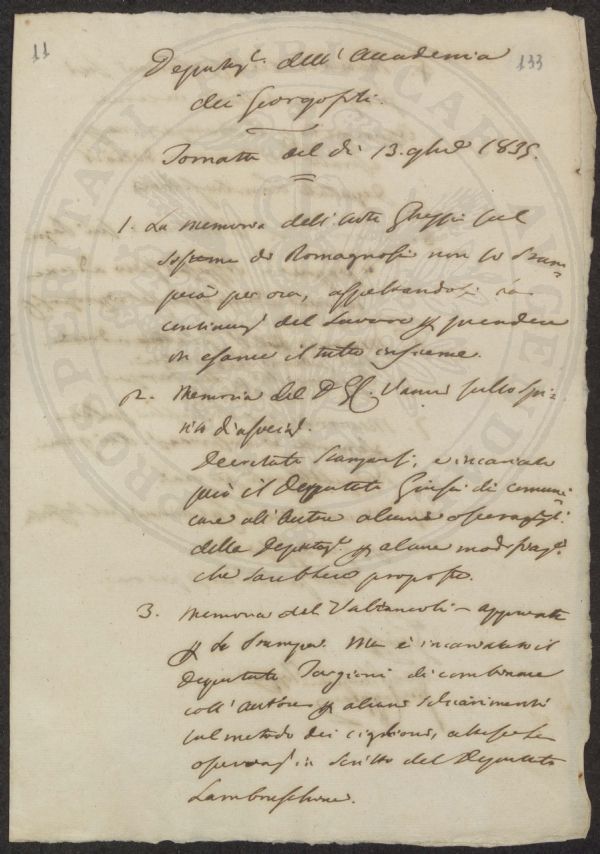 11
133
Deputaz.e dell'Accademia
dei Georgofili.
Tornata del dì 13. 9bre 1835.
1. La memoria dell'Avv.to sul
sistema di Romagnosi non si stam=
perà per ora, aspettandosi la
continuaz.e del lavoro p prendere
in esame il tutto insieme.
2. Memoria del D. Vanni sullo spi=
rito d'associaz.
Decretata stamparsi, e incaricato
però il Deputato Giusti di comuni=
care all'autore alcune osservaz.i
della Deputaz.e p alcune modificaz.i
che sarebbero proposte.
3. Memoria del Valtancoli - approvata
p la stampa. Ma è incaricato il
Deputato Targioni di combinare
coll'Autore p alcuni schiarimenti
sul metodo dei ciglioni, attese le
osservaz.i in scritto del Deputato
Lambruschini.
PROSPERITATI PUBLICAE AUGENDAE